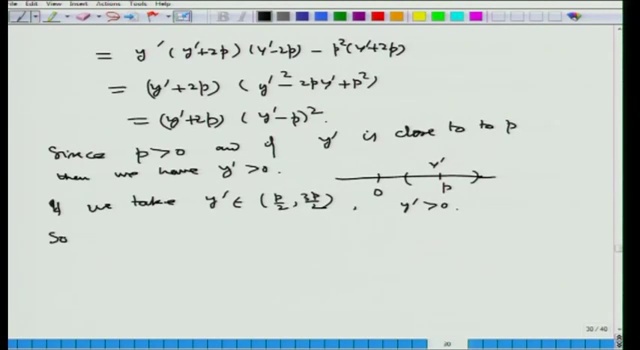 File Edit View Insert Actions Tools Help
= y'(y'+2p)(y'-2p) - p²(y'+2p)
= (y'+2p) (y'² - 2py' + p²)
= (y'+2p) (y'-p)².
Since p>0 and if y' is close to to p
then we have y'>0.
y'
0 p
If we take y' ∈ (p/2, 3p/2), y'>0.
So
30 / 40
30